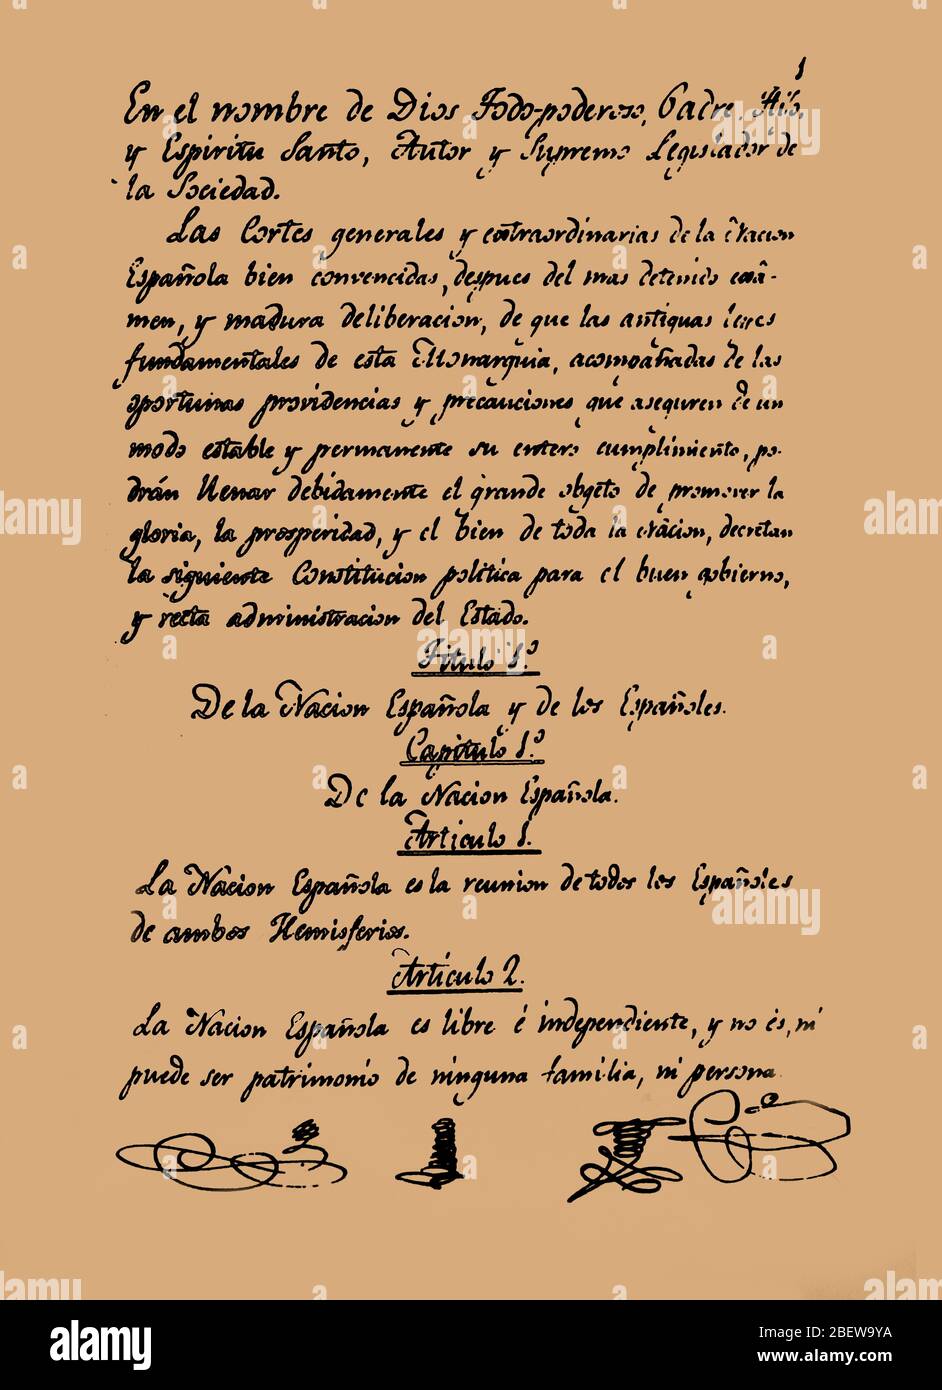 1
En el nombre de Dios Todo-poderoso, Padre, Hijo,
y Espiritu Santo, Autor y Supremo Legislador de
la Sociedad.
Las Cortes generales y extraordinarias de la Nacion
Española bien convencidas, despues del mas detenido exâ-
men, y madura deliberacion, de que las antiguas leyes
fundamentales de esta Monarquia, acompañadas de las
oportunas providencias y precauciones, que aseguren de un
modo estable y permanente su entero cumplimiento, po-
drán llenar debidamente el grande objeto de promover la
gloria, la prosperidad, y el bien de toda la Nacion, decretan
la siguiente Constitucion politica para el buen gobierno,
y recta administracion del Estado.
Titulo 1.º
De la Nacion Española y de los Españoles.
Capitulo 1.º
De la Nacion Española.
Articulo 1.
La Nacion Española es la reunion de todos los Españoles
de ambos Hemisferios.
Articulo 2.
La Nacion Española es libre é independiente, y no es, ni
puede ser patrimonio de ninguna familia, ni persona.
alamy
Image ID: 2BEW9YA
www.alamy.com